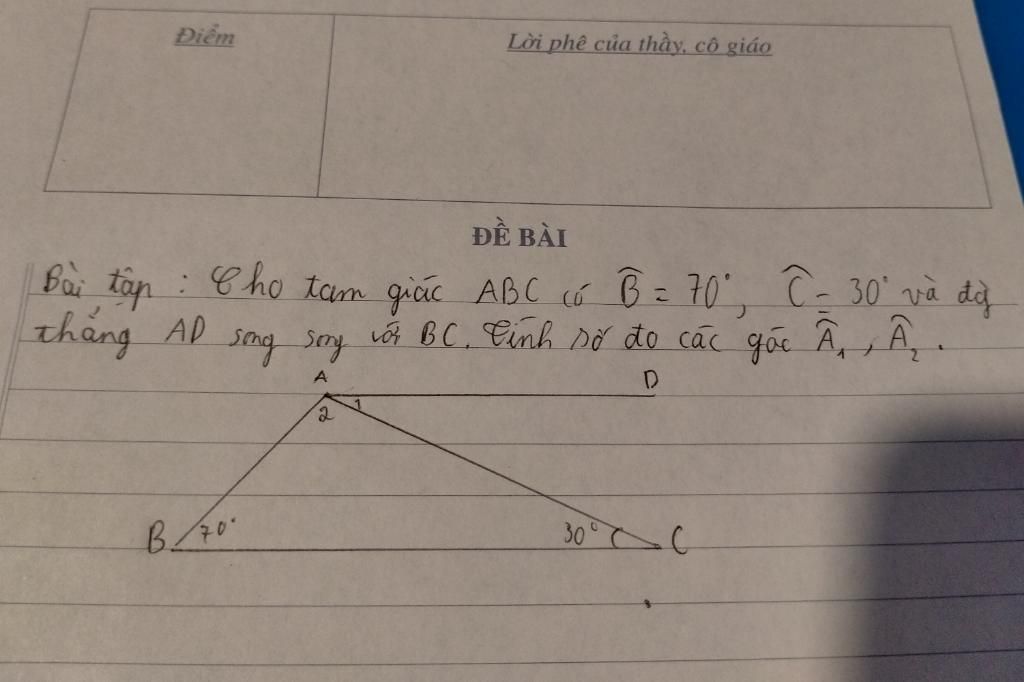 Điểm
Lời phê của thầy, cô giáo
ĐỀ BÀI
Bài tập : Cho tam giác ABC có B̂ = 70°, Ĉ = 30° và đg
thẳng AD song song với BC. Tính số đo các góc Â₁, Â₂.
A D
2 1
B 70° 30° C